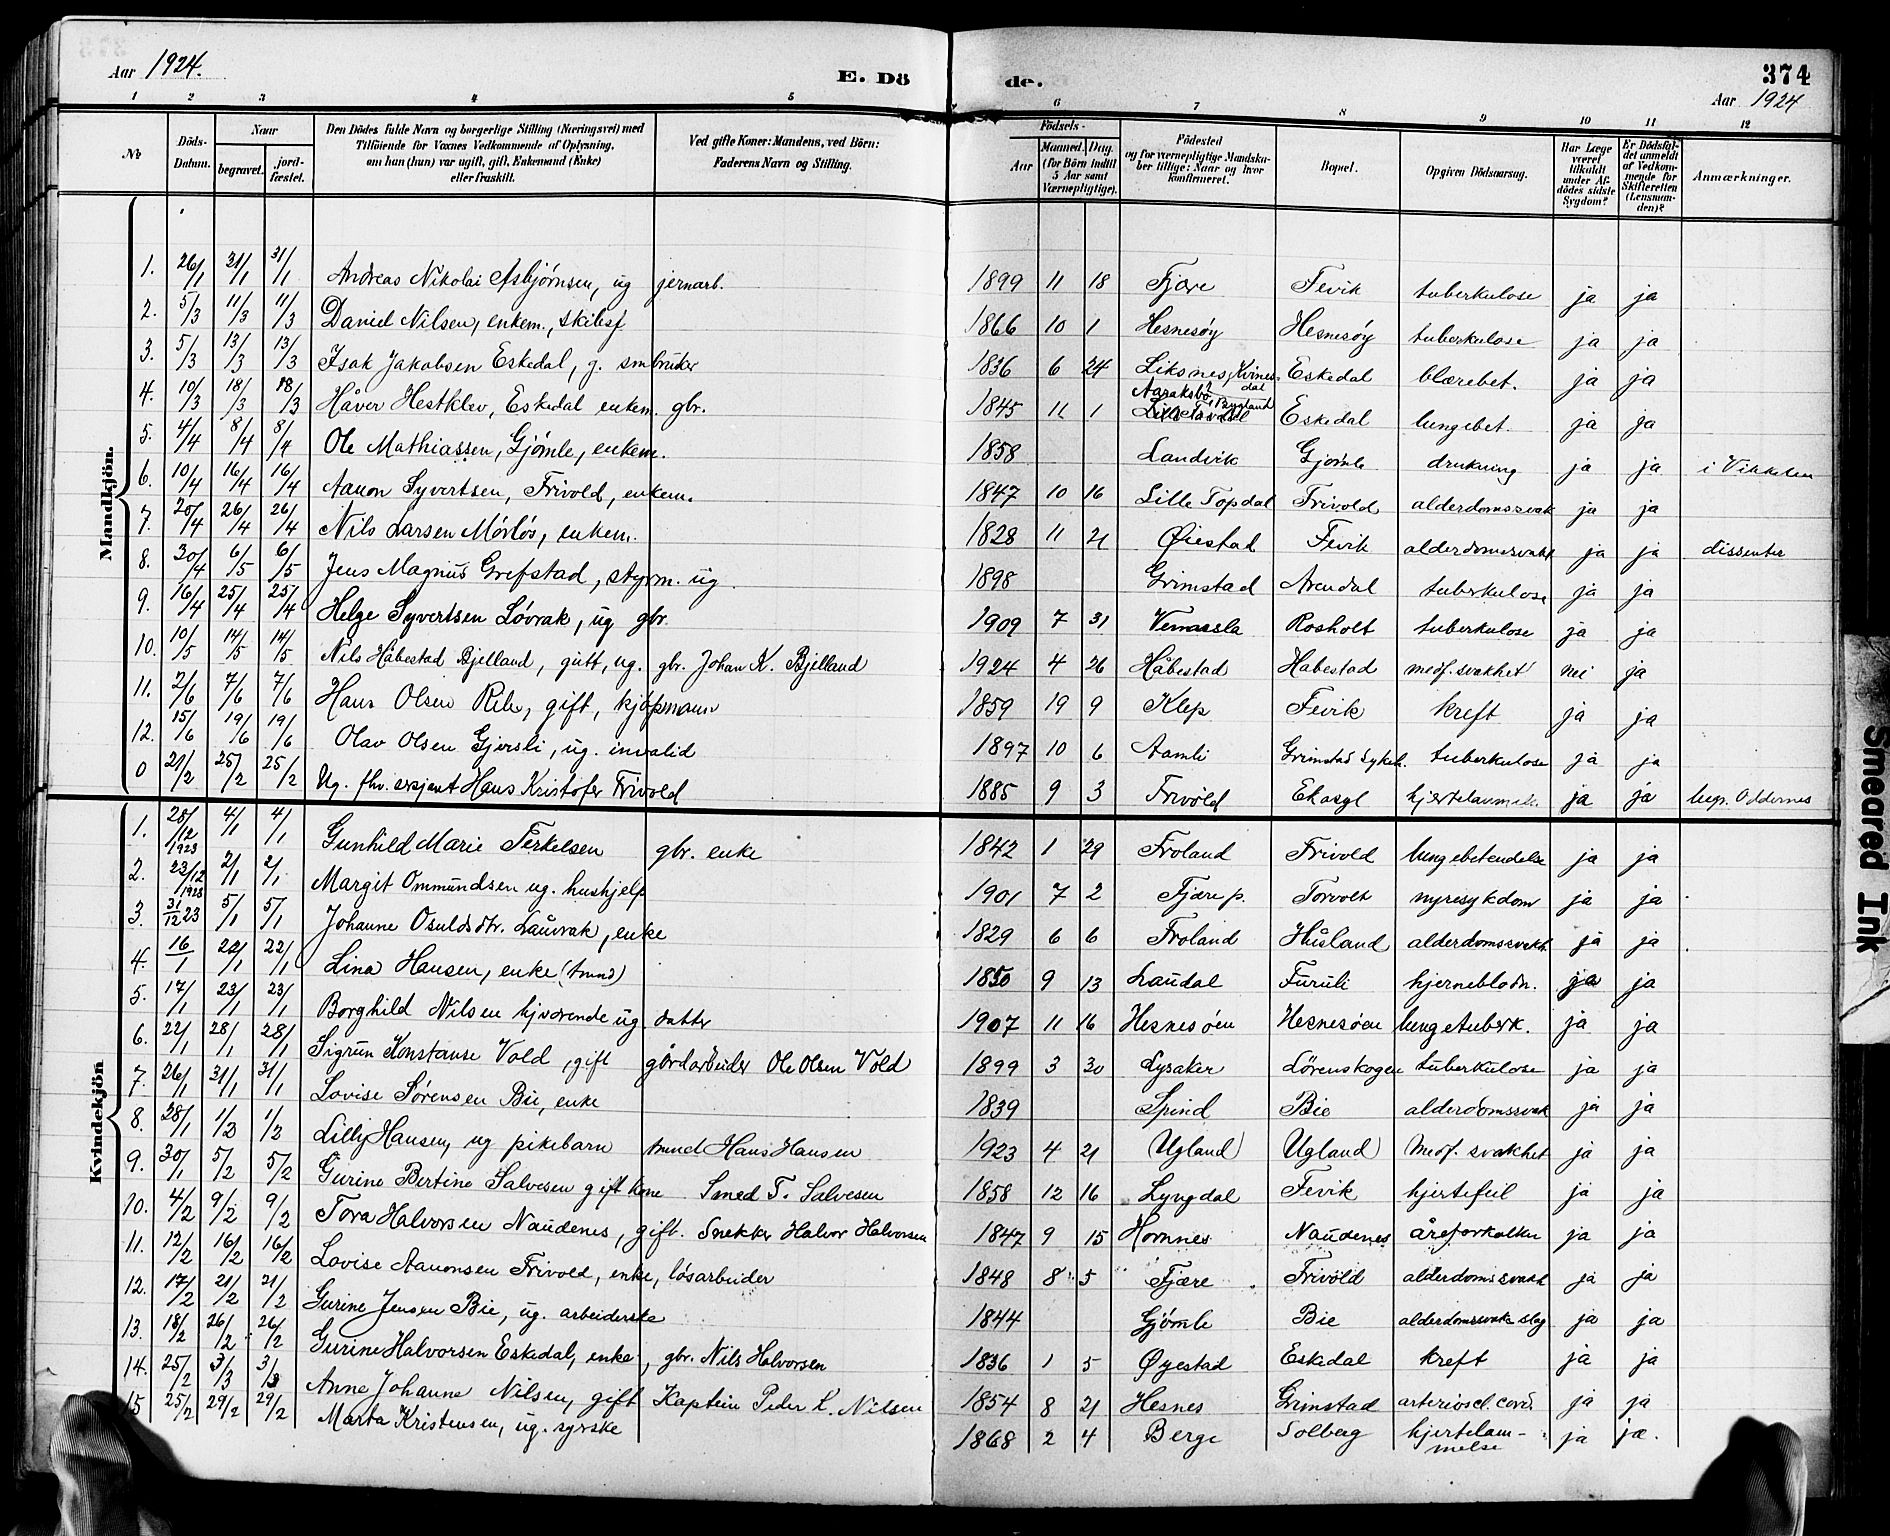 Aar 1924. E. Dö de. 374
Aar 1924
1 2 3 4 5 6 7 8 9 10 11 12
No Döds-Datum. Naar begravet. jordfæstet. Den Dödes fulde Navn og borgerlige Stilling (Næringsvei) med Tilföiende for Voxnes Vedkommende af Oplysning, om han (hun) var ugift, gift, Enkemand (Enke) eller fraskilt. Ved gifte Koner: Mandens, ved Börn: Faderens Navn og Stilling. Födsels- Aar Maaned. Dag. (for Börn indtil 5 Aar samt Værnepligtige). Födested og for værnepligtige Mandskaber tillige: Naar og hvor konfirmeret. Bopæl. Opgiven Dödsaarsag. Har Læge været tilkaldt under Afdödes sidste Sygdom? Er Dödsfaldet anmeldt af Vedkommende for Skifteretten (Lensmanden)? Anmærkninger.
Mandkjön.
1. 26/1 31/1 31/1 Andreas Nikolai Asbjørnsen, ug jernarb. 1899 11 18 Fjære Fevik tuberkulose ja ja
2. 5/3 11/3 11/3 Daniel Nilsen, enkem., skibsf 1866 10 1 Hesnesøy Hesnesøy tuberkulose ja ja
3. 5/3 13/3 13/3 Isak Jakobsen Eskedal, g. smbruker 1836 6 24 Liksnes, Kvinesdal Eskedal blærebet. ja ja
4. 10/3 18/3 18/3 Håver Hestklev, Eskedal enkem. gbr. 1845 11 1 Aaraksbø i Bygland Eskedal lungebet. ja ja
5. 4/4 8/4 8/4 Ole Mathiassen, Gjømle, enkem. 1858 Landvik Gjømle drukning ja ja i Vikkilen
6. 10/4 16/4 16/4 Aanon Syvertsen, Frivold, enkem. 1847 10 16 Lille Topdal Frivold alderdomssvak ja ja
7. 20/4 26/4 26/4 Nils Larsen Mørløs, enkem. 1828 11 21 Øiestad Fevik alderdomssvakh ja ja dissenter
8. 30/4 6/5 6/5 Jens Magnus Grefstad, styrm. ug 1898 Grimstad Arendal tuberkulose ja ja
9. 16/4 25/4 25/4 Helge Syvertsen Løvrak, ug gbr. 1909 7 31 Vennesla Rosholt tuberkulose ja ja
10. 10/5 14/5 14/5 Nils Håbestad Bjelland, gutt, ug. gbr. Johan K. Bjelland 1924 4 26 Håbestad Habestad medf. svakhet nei ja
11. 2/6 7/6 7/6 Hans Olsen Rile, gift, kjøpmann 1859 19 9 Klep Fevik kreft ja ja
12. 15/6 19/6 19/6 Olav Olsen Gjersli, ug. invalid 1897 10 6 Aamli Grimstad Sykeh. tuberkulose ja ja
0 21/2 25/2 25/2 Ug. fhv. sersjant Hans Kristofer Frivold 1885 9 3 Frivold Ekasyl ja ja begr. Oddernes
Kvindekjön
1. 28/12 1923 4/1 4/1 Gunhild Marie Terkelsen gbr. enke 1842 1 29 Froland Frivold lungebetendelse ja ja
2. 23/12 1923 2/1 2/1 Margit Ommundsen ug. hushjelp 1901 7 2 Fjære p. Torvolt nyresykdom ja ja
3. 31/12 23 5/1 5/1 Johanne Osuldsdtr. Lauvrak, enke 1829 6 6 Froland Håsland alderdomssvakh. ja ja
4. 16/1 22/1 22/1 Lina Hansen, enke (tmnd) 1850 9 13 Laudal Furuli hjerneblødn. ja ja
5. 17/1 23/1 23/1 Borghild Nilsen hjværende ug datter 1907 11 16 Hesnesøen Hesnesøen lungetuberk. ja ja
6. 22/1 28/1 28/1 Sigrun Konstanse Vold, gift gårdarbeider Ole Olsen Vold 1899 3 30 Lysaker Lørenskogen tuberkulose ja ja
7. 26/1 31/1 31/1 Lovise Sørensen Bie, enke 1839 Spind Bie alderdomssvak ja ja
8. 28/1 1/2 1/2 Lilly Hansen, ug pikebarn tmnd Hans Hansen 1923 4 21 Ugland Ugland medf. svakhet ja ja
9. 30/1 5/2 5/2 Gurine Bertine Salvesen gift kone Smed T. Salvesen 1858 12 16 Lyngdal Fevik hjertefeil ja ja
10. 4/2 9/2 9/2 Tora Halvorsen Naudenes, gift. Snekker Halvor Halvorsen 1847 9 15 Hornnes Naudenes åreforkalkn ja ja
11. 12/2 16/2 16/2 Lovise Aanonsen Frivold, enke, løsarbeider 1848 8 5 Fjære Frivold alderdomssvakh ja ja
12. 17/2 21/2 21/2 Gurine Jensen Bie, ug. arbeiderske 1844 Gjømle Bie alderdomssvake slag ja ja
13. 18/2 26/2 26/2 Gurine Halvorsen Eskedal, enke, gbr. Nils Halvorsen 1836 1 5 Øyestad Eskedal kreft ja ja
14. 25/2 3/3 3/3 Anne Johanne Nilsen, gift Kaptein Peder L. Nilsen 1854 8 21 Hesnes Grimstad arterioscl. cord. ja ja
15 25/2 29/2 29/2 Marta Kristensen, ug. syrske 1868 2 4 Berge Solberg hjertelammelse ja ja.
Smeared Ink